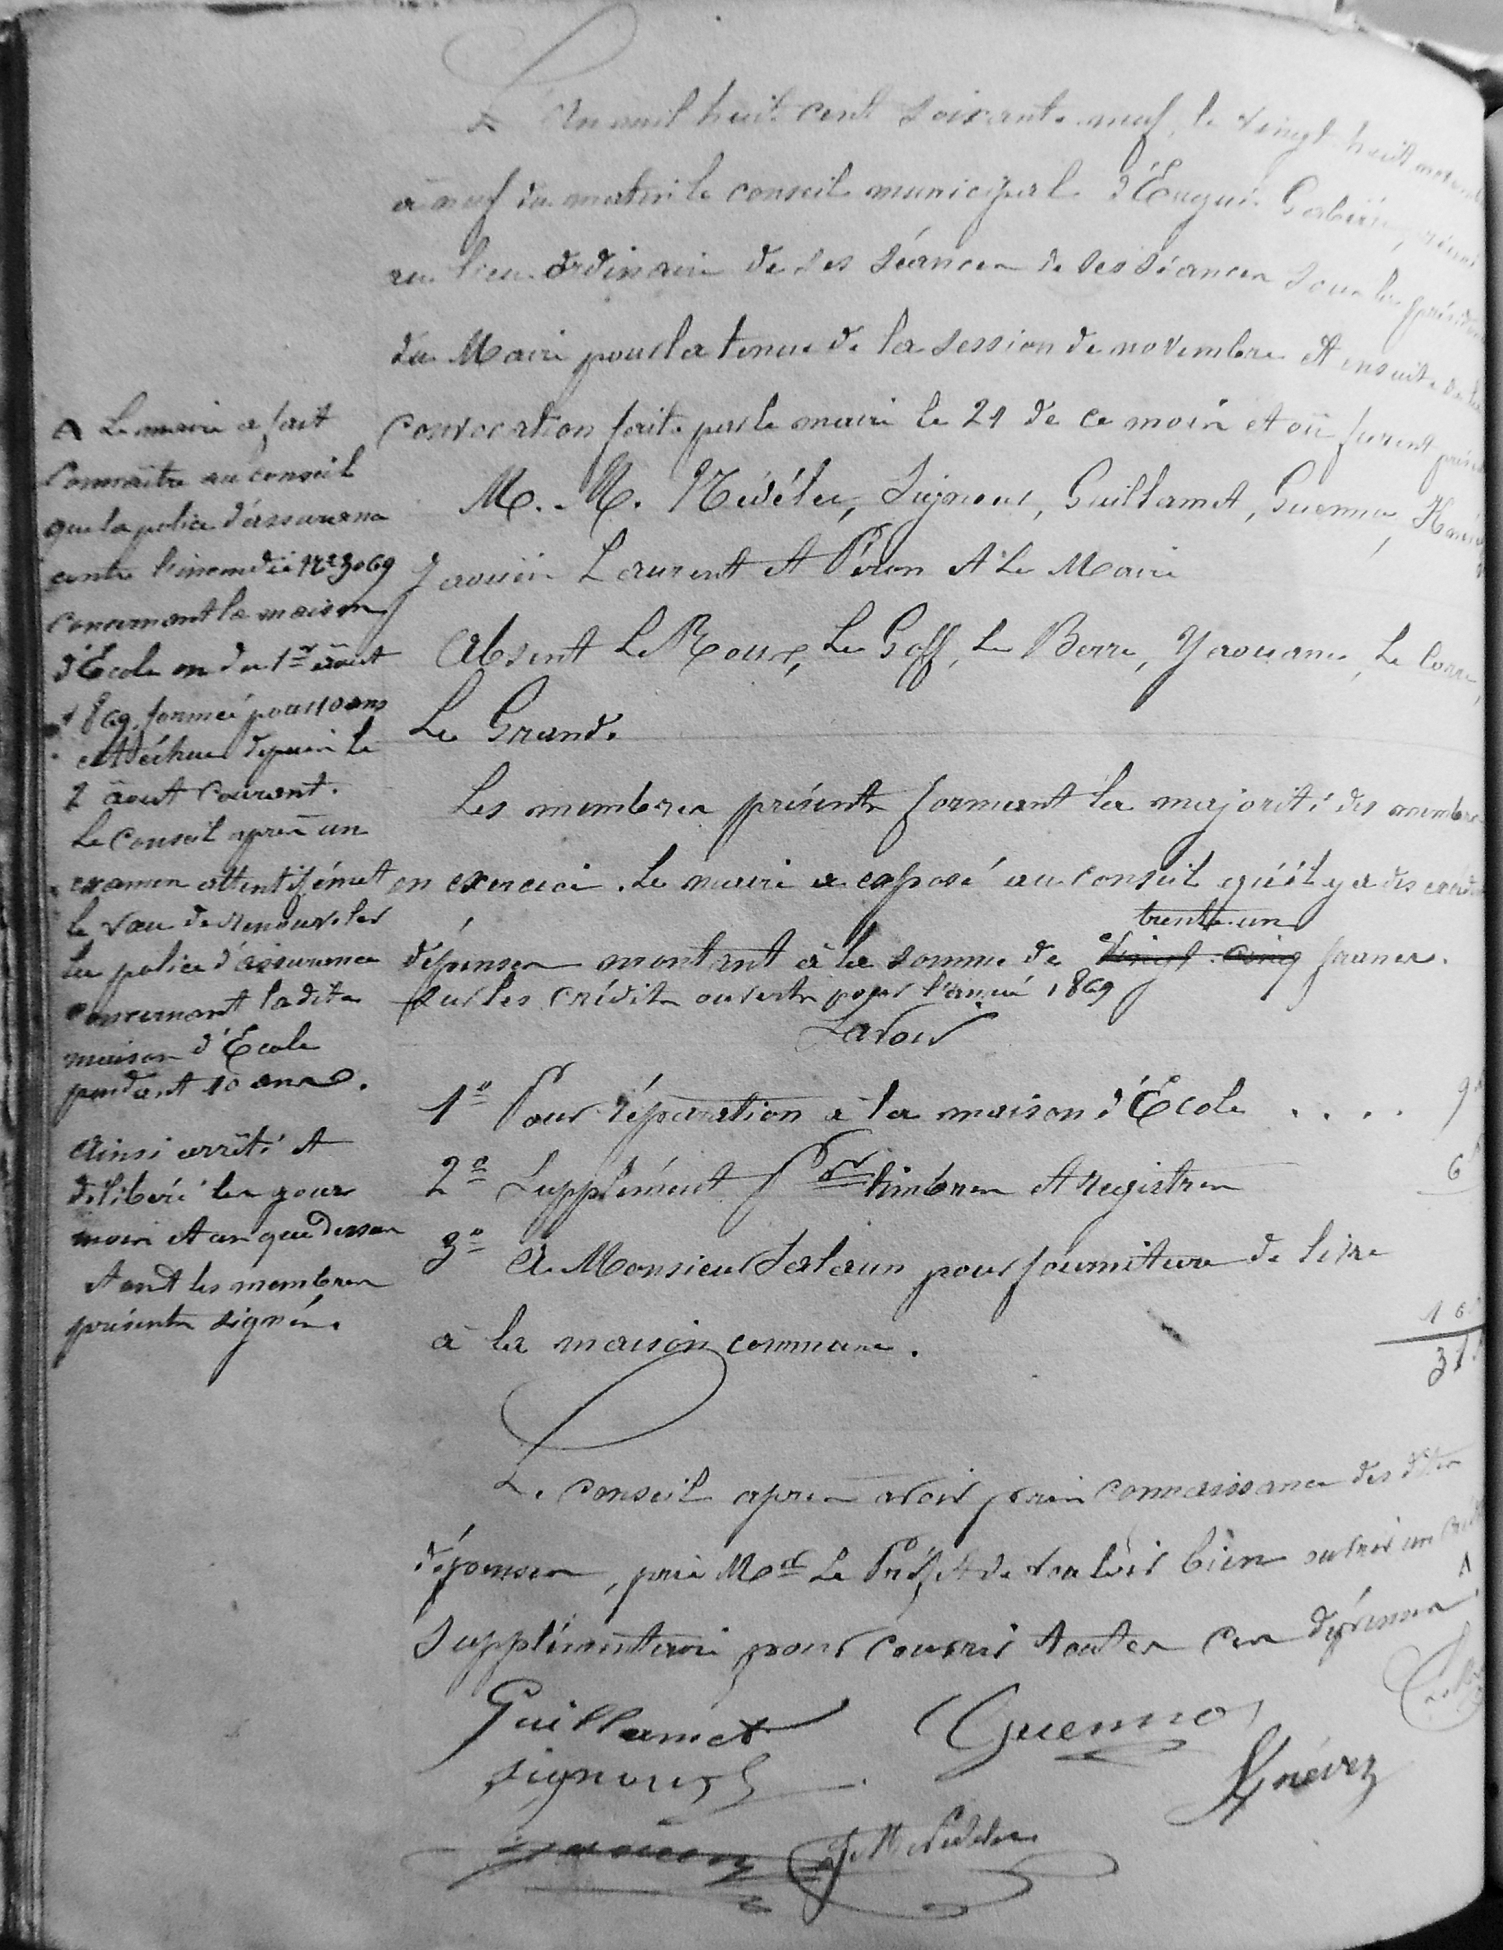 L'An mil huit cent soixante neuf, le vingt huit novembre
à neuf du matin le conseil municipal d'Engui Gorbian, réuni
au lieu ordinaire de ses séances de ses séances sous la présidence
du Maire pour la tenue de la session de novembre et ensuite de la
convocation faite par le maire le 21 de ce mois et où furent présents
M. M. Nédélec, Signour, Guillamet, Guennoc,
Jaouën Laurent et Péron et Le Maire
Absent Le Roux, Le Goff, Le Borre, Yaouanc, Le Corre,
Le Grand.
Les membres présents formant la majorité des membres
en exercice. Le maire a exposé au conseil qu'il y a des
trente un
dépenses montant à la somme de vingt cinq francs.
sur les crédits ouverts pour l'année 1869
Savoir
1º Pour réparation à la maison d'École . . . .
2º Supplément pr timbres et registres 6
3º A Monsieur Salaun pour fourniture de livre
à la maison commune. 10
31
Le conseil après avoir pris connaissance des dites
dépenses, prie Mr Le Préfet de vouloir bien ouvrir un
supplémentaire pour couvrir toutes ces dépenses Λ
Guillamet Guennoc
Signour Kgnévez
Jaouen J M Nédélec
Λ Le maire a fait
connaître au conseil
que la police d'assurance
contre l'incendie Nº 3069
concernant la maison
d'École en du 1er août
1869, formée pour 10 ans
est échue depuis le
2 août courant.
Le Conseil après un
examen attentif émet
le vœu de renouveler
la police d'assurance
concernant la dite
maison d'École
pendant 10 ans.
Ainsi arrêté et
délibéré les jour
mois et an que dessus
et ont les membres
présents signé.